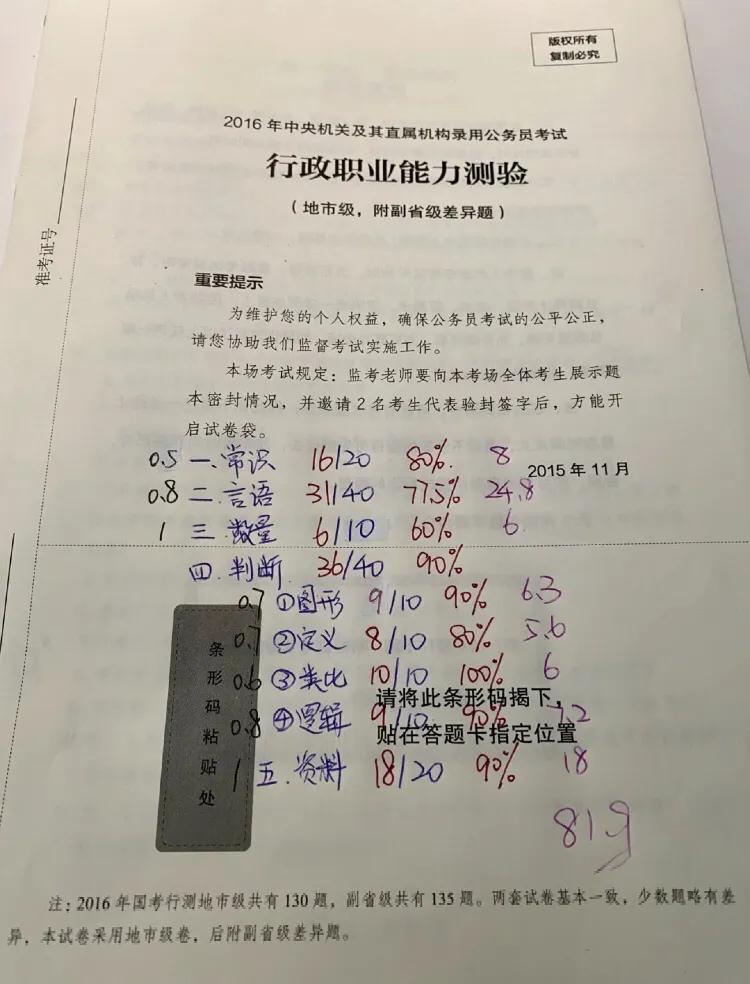 版权所有
复制必究
2016年中央机关及其直属机构录用公务员考试
行政职业能力测验
（地市级，附副省级差异题）
准考证号
重要提示
为维护您的个人权益，确保公务员考试的公平公正，
请您协助我们监督考试实施工作。
本场考试规定：监考老师要向本考场全体考生展示题
本密封情况，并邀请2名考生代表验封签字后，方能开
启试卷袋。
2015年11月
0.5 一.常识 16/20 80%. 8
0.8 二.言语 31/40 77.5% 24.8
1 三.数量 6/10 60% 6
四.判断 36/40 90%
0.7 ①图形 9/10 90% 6.3
0.7 ②定义 8/10 80% 5.6
0.6 ③类比 10/10 100% 6
0.8 ④逻辑 9/10 90% 7.2
1 五.资料 18/20 90% 18
81.9
条形码粘贴处
请将此条形码揭下，
贴在答题卡指定位置
注：2016年国考行测地市级共有130题，副省级共有135题。两套试卷基本一致，少数题略有差
异，本试卷采用地市级卷，后附副省级差异题。